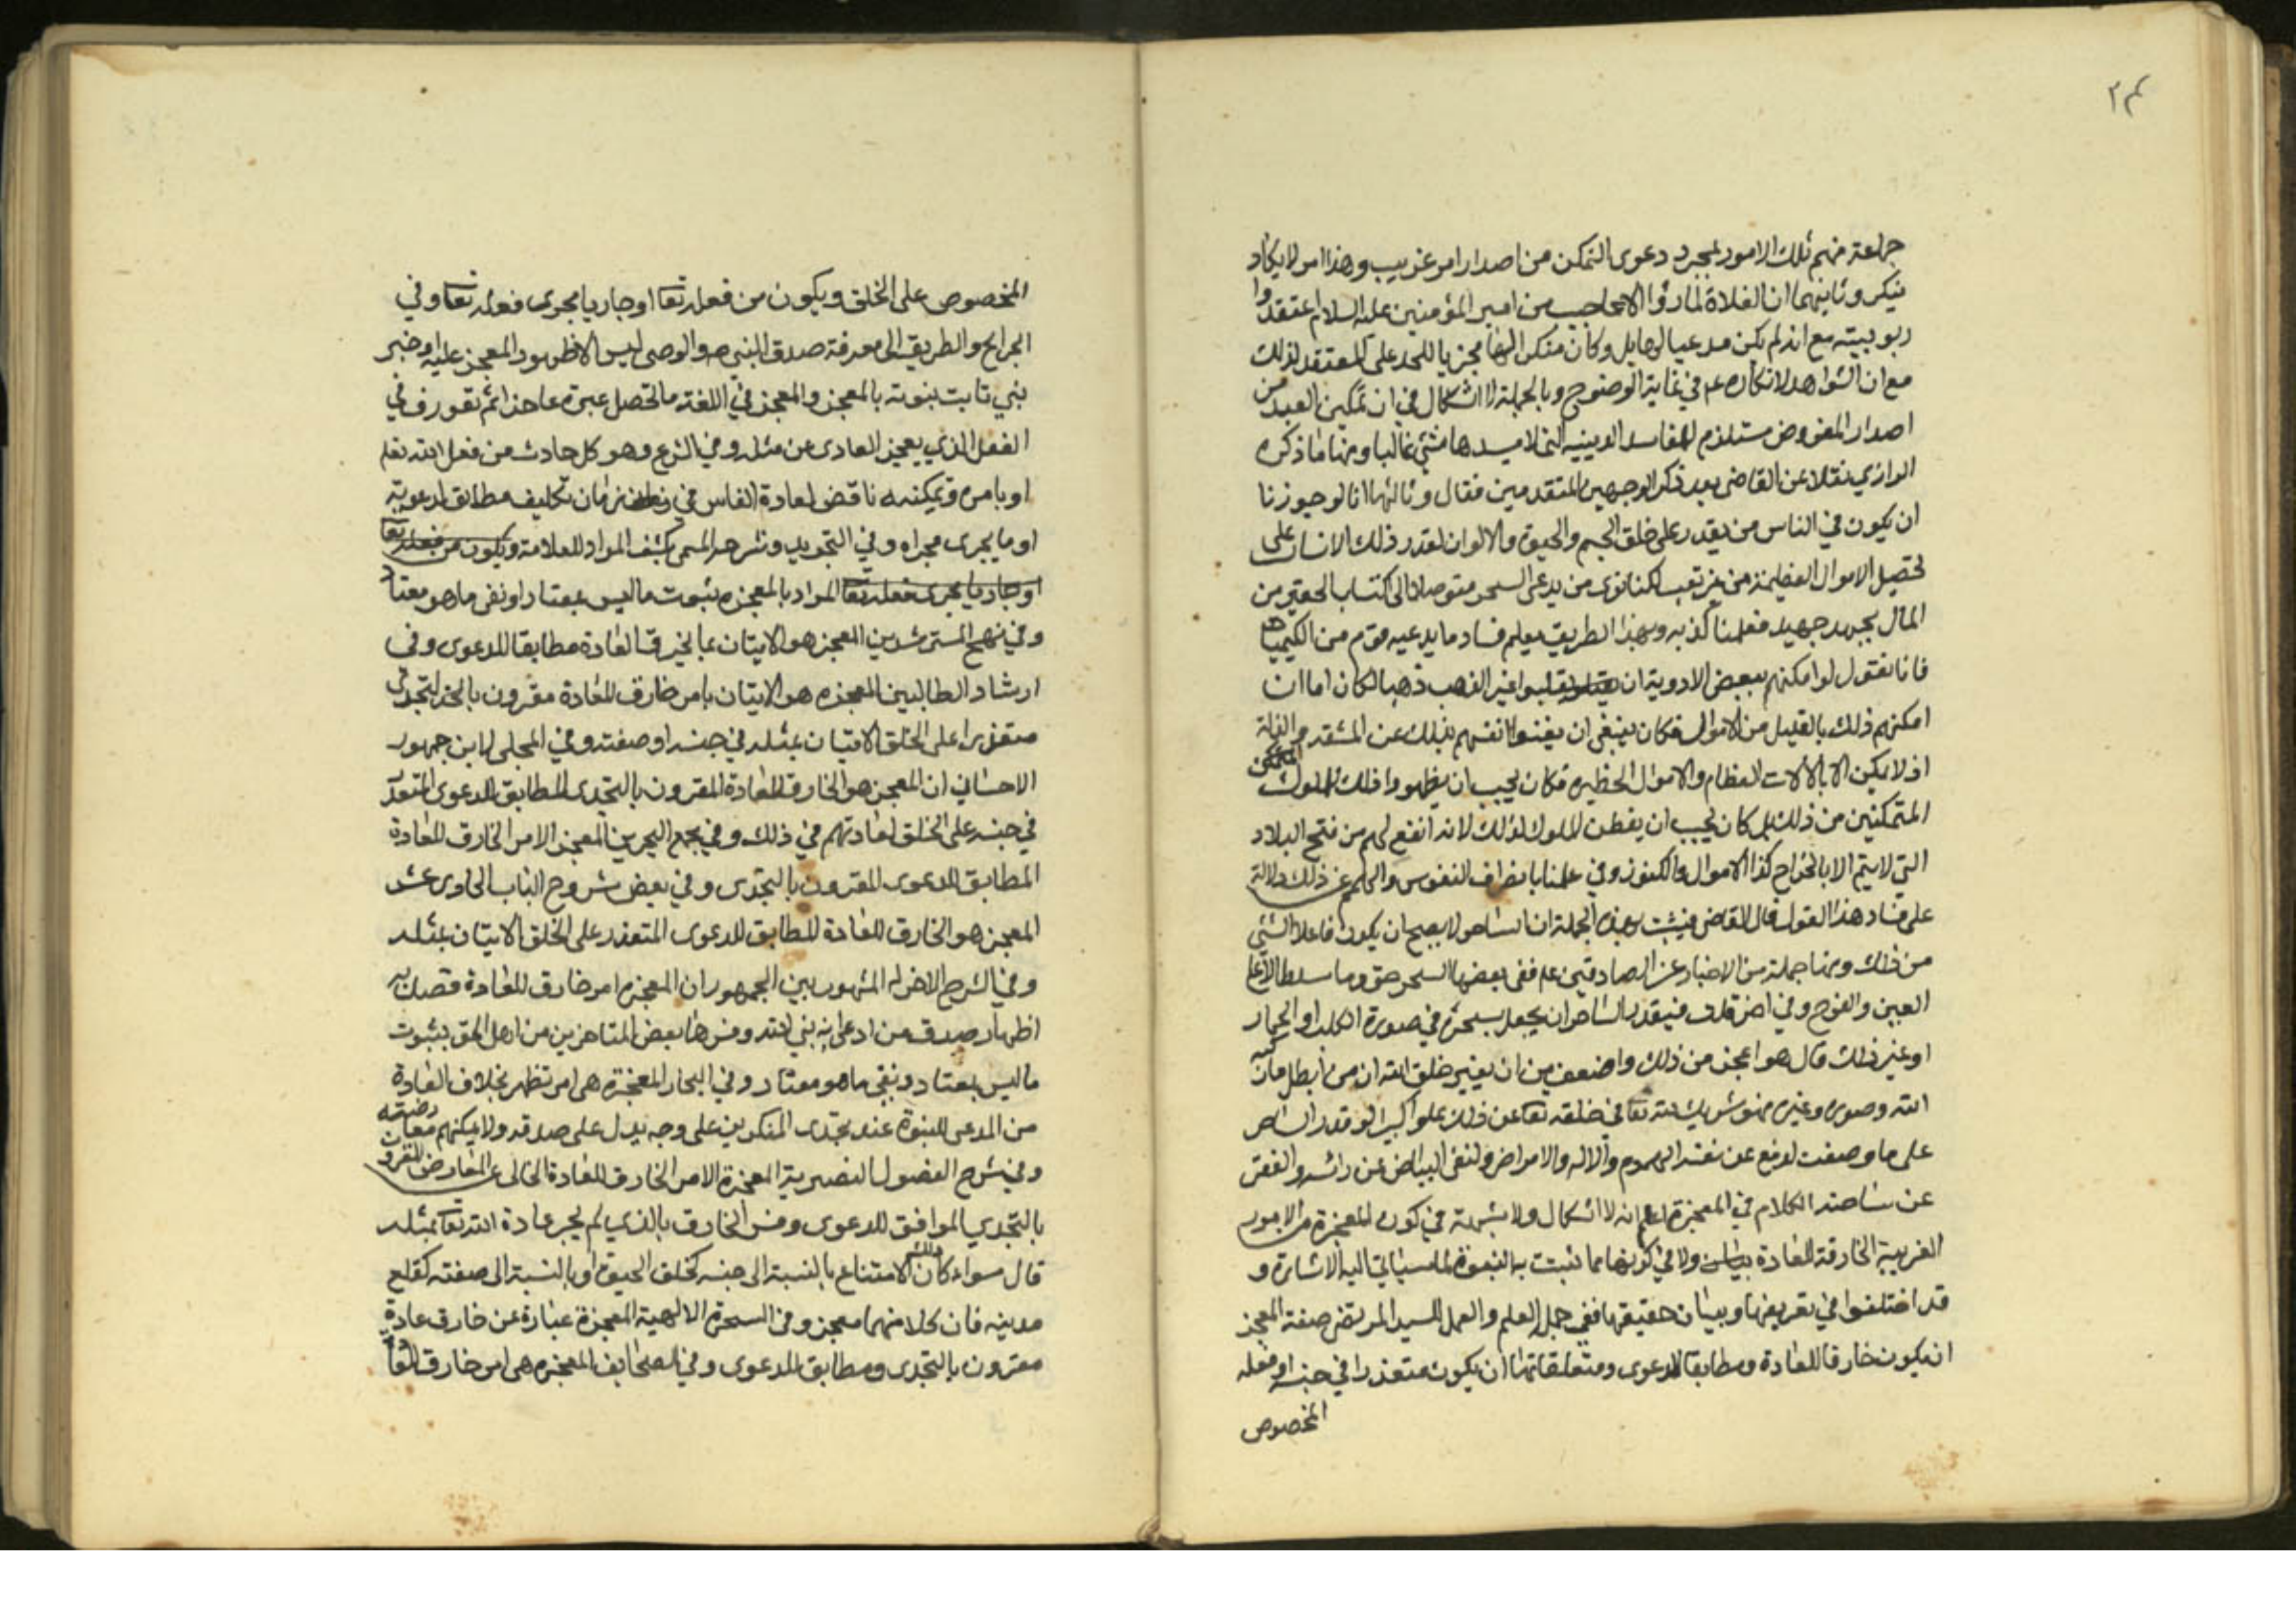 ٢٤
جماعة منهم تلك الامور لمجرد دعوى التمكن من اصدار امر غريب وهذا امر لا يكاد
ينكر وثانيهما ان الغلاة لما رؤا الاعاجيب من امير المؤمنين عليه السلام اعتقدوا
ربوبيته مع انه لم يكن مدعيا لها بل وكان منكرا لها مجزيا للحد على المعتقد لذلك
مع ان الشواهد لانكاره عم في غاية الوضوح وبالجملة لا اشكال في ان تمكين العبد من
اصدار المفروض مستلزم للمفاسد الدينيه التي لا يسدها شئ غالبا ومنها ما ذكره
الرازي نقلا عن القاضي بعد ذكر الوجهين المتقدمين فقال وثالثها انا لو جوزنا
ان يكون في الناس من يقدر على خلق الجسم والحيوة والالوان لقدر ذلك الانسان على
تحصيل الاموال العظيمة من غير تعب لكنا نرى من يدعى السحر متوصلا الى اكتساب الحقير من
المال بجهد جهيد فعلمنا كذبه وبهذا الطريق يعلم فساد ما يدعيه قوم من الكيمياء
فانا نقول لو امكنهم ببعض الادوية ان يقلبوا غير الذهب ذهبا لكان اما ان
امكنهم ذلك بالقليل من الاموال فكان ينبغي ان يغنوا انفسهم بذلك عن المشقة والذلة
او لا يمكن الا بالالات العظام والاموال الخطيره فكان يجب ان يظهروا ذلك للملوك
المتمكنين من ذلك بل كان يجب ان يفطن الملوك لذلك لانه انفع لهم من فتح البلاد
التي لا يتم الا باخراج كذا الاموال والكنوز وفي علمنا بانصراف النفوس والهمم عن ذلك دلالة
على فساد هذا القول قال القاضي فيثبت بهذه الجملة ان الساحر لا يصح ان يكون فاعلا لشئ
من ذلك ومنها جملة من الاخبار عن الصادقين عم ففي بعضها السحر حق وما سلط الا على
العين والفرج وفي اخر قلت فيقدر الساحر ان يجعل بسحره في صورة الكلب او الحمار
او غير ذلك قال هو اعجز من ذلك واضعف من ان يغير خلق الله ان من ابطل ما ركبه
الله وصوره وغيره فهو شريك لله تعا في خلقه تعا عن ذلك علوا كبيرا لو قدر الساحر
على ما وصفت لدفع عن نفسه الهموم والاله والامراض ولنفى البياض عن راسه والفقر
عن ساحته الكلام في المعجزة اعلم انه لا اشكال ولا شبهة في كون المعجزة من الامور
الغريبة الخارقة للعادة ولا في كونها مما تثبت به النبوة لما سياتي اليه الاشارة و
قد اختلفوا في تعريفها وبيان حقيقتها ففي جمل العلم والعمل للسيد المرتضى صفة المعجز
ان يكون خارقا للعادة ومطابقا لدعوى ومتعلقا بها ان يكون متعذرا في جنسه او فعله
المخصوص
المخصوص على الخلق ويكون من فعله تعا او جاريا مجرى فعله تعا وفي
الجرايح والطريق الى معرفة صدق النبي ص والوصى ليس الا ظهور المعجز عليه او خبر
نبي ثابت نبوته بالمعجز والمعجز في اللغة ما تحصل عبره عاجزا ثم تعورف في
الفعل الذي يعجز العادى عن مثله وفي الشرع وهو كل حادث من فعل الله تعا
او بامره وتمكينه ناقض لعادة الناس في زمان تكليف مطابق لدعويه
او ما يجرى مجراه وفي التجريد وشرحه المسمى بكشف المراد للعلامة ويكون من فعله تعا
او جاريا مجرى فعله تعا المراد بالمعجزه ثبوت ما ليس بمعتاد او نفى ما هو معتاد
وفي نهج المسترشدين المعجز هو الاتيان بما يخرق العادة مطابقا للدعوى وفي
ارشاد الطالبين المعجزه هو الاتيان بامر خارق للعادة مقرون بالتحدى
متعذرا على الخلق الاتيان بمثله في جنسه او صفته وفي المجلى لابن جمهور
الاحسائي ان المعجز هو الخارق للعادة المقرون بالتحدى المطابق للدعوى المتعذر
في جنسه على الخلق لعادتهم في ذلك وفي مجمع البحرين المعجز الامر الخارق للعادة
المطابق للدعوى المقترون بالتحدى وفي بعض شروح الباب الحادى عشر
المعجز هو الخارق للعادة المطابق للدعوى المتعذر على الخلق الاتيان بمثله
وفي الشرح الاخر له المشهور بين الجمهور ان المعجزه امر خارق للعادة قصد به
اظهار صدق من ادعى انه نبي الله وفسرها بعض المتاخرين من اهل الحق بثبوت
ما ليس بمعتاد ونفي ما هو معتاد وفي البحار المعجزة هى امر تظهر بخلاف العادة
من المدعى للنبوة عند تحدى المنكرين على وجه يدل على صدقه ولا يمكنهم معارضته
وفي شرح الفصول النصيرية المعجزة الامر الخارق للعادة الخالى عن المعارض المقرون
بالتحدي الموافق للدعوى وفسر الخارق بالذي لم يجر عادة الله تعا بمثله
قال سواء كان ذلك الامتناع بالنسبة الى جنسه كخلق الحيوة او بالنسبة الى صفته كقلع
مدينه فان كلا منهما معجز وفي السحرة الالهية المعجزة عبارة عن خارق عادة
مقرون بالتحدى ومطابق للدعوى وفي الصحايف المعجزه هى امر خارق للعادة